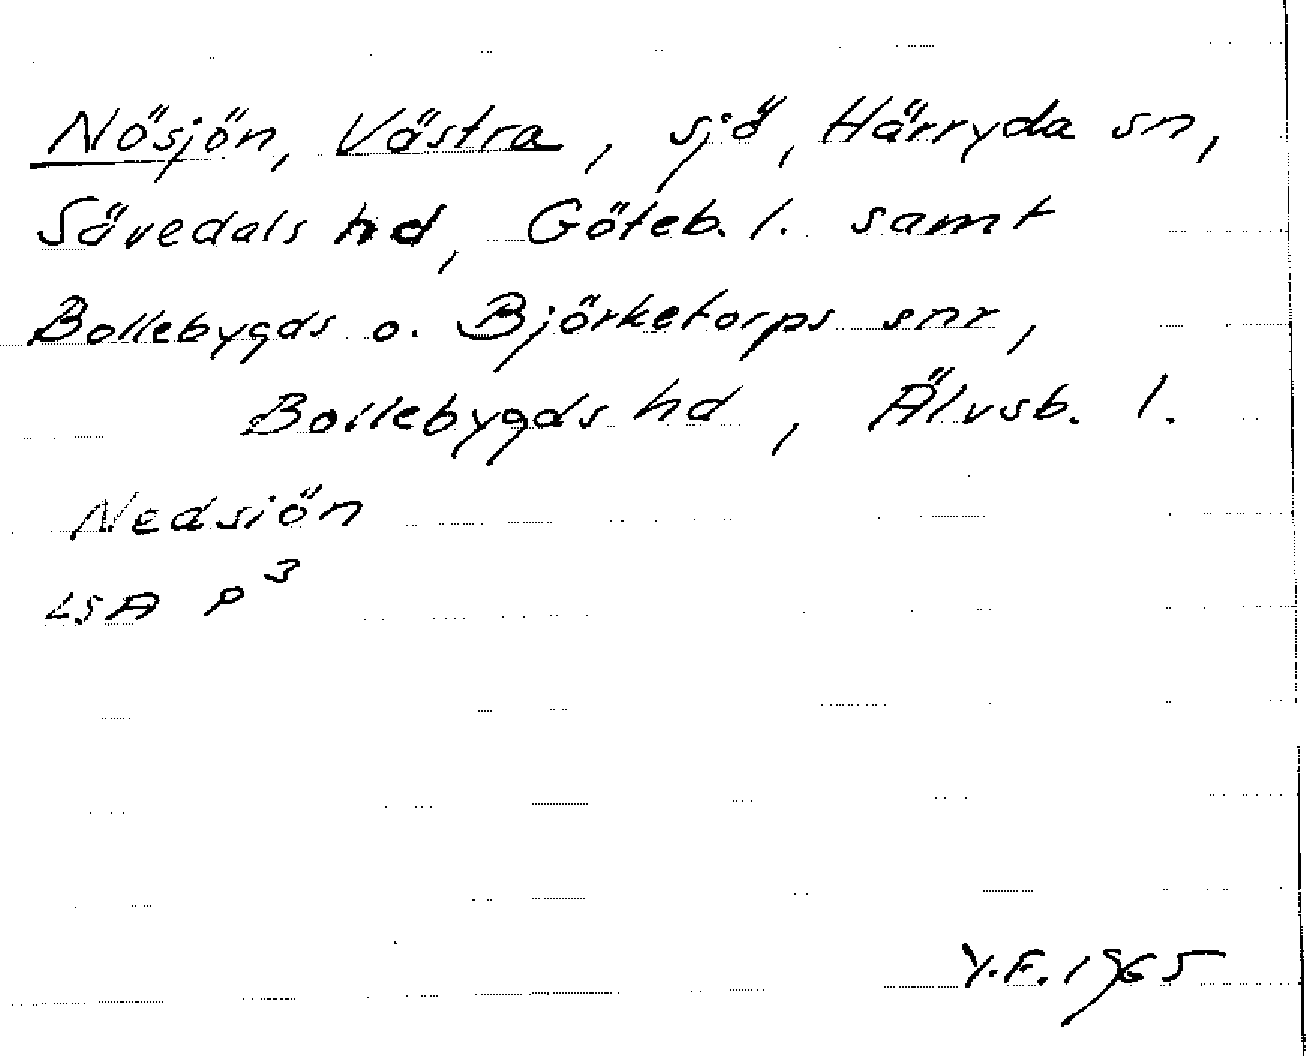 Nösjön, Västra, sjö, Härryda sn,
Sävedals hd, Göteb. l. samt
Bollebygds o. Björketorps snr,
Bollebygds hd, Älvsb. l.
Nedsiön
LSA P³
Y.F. 1965